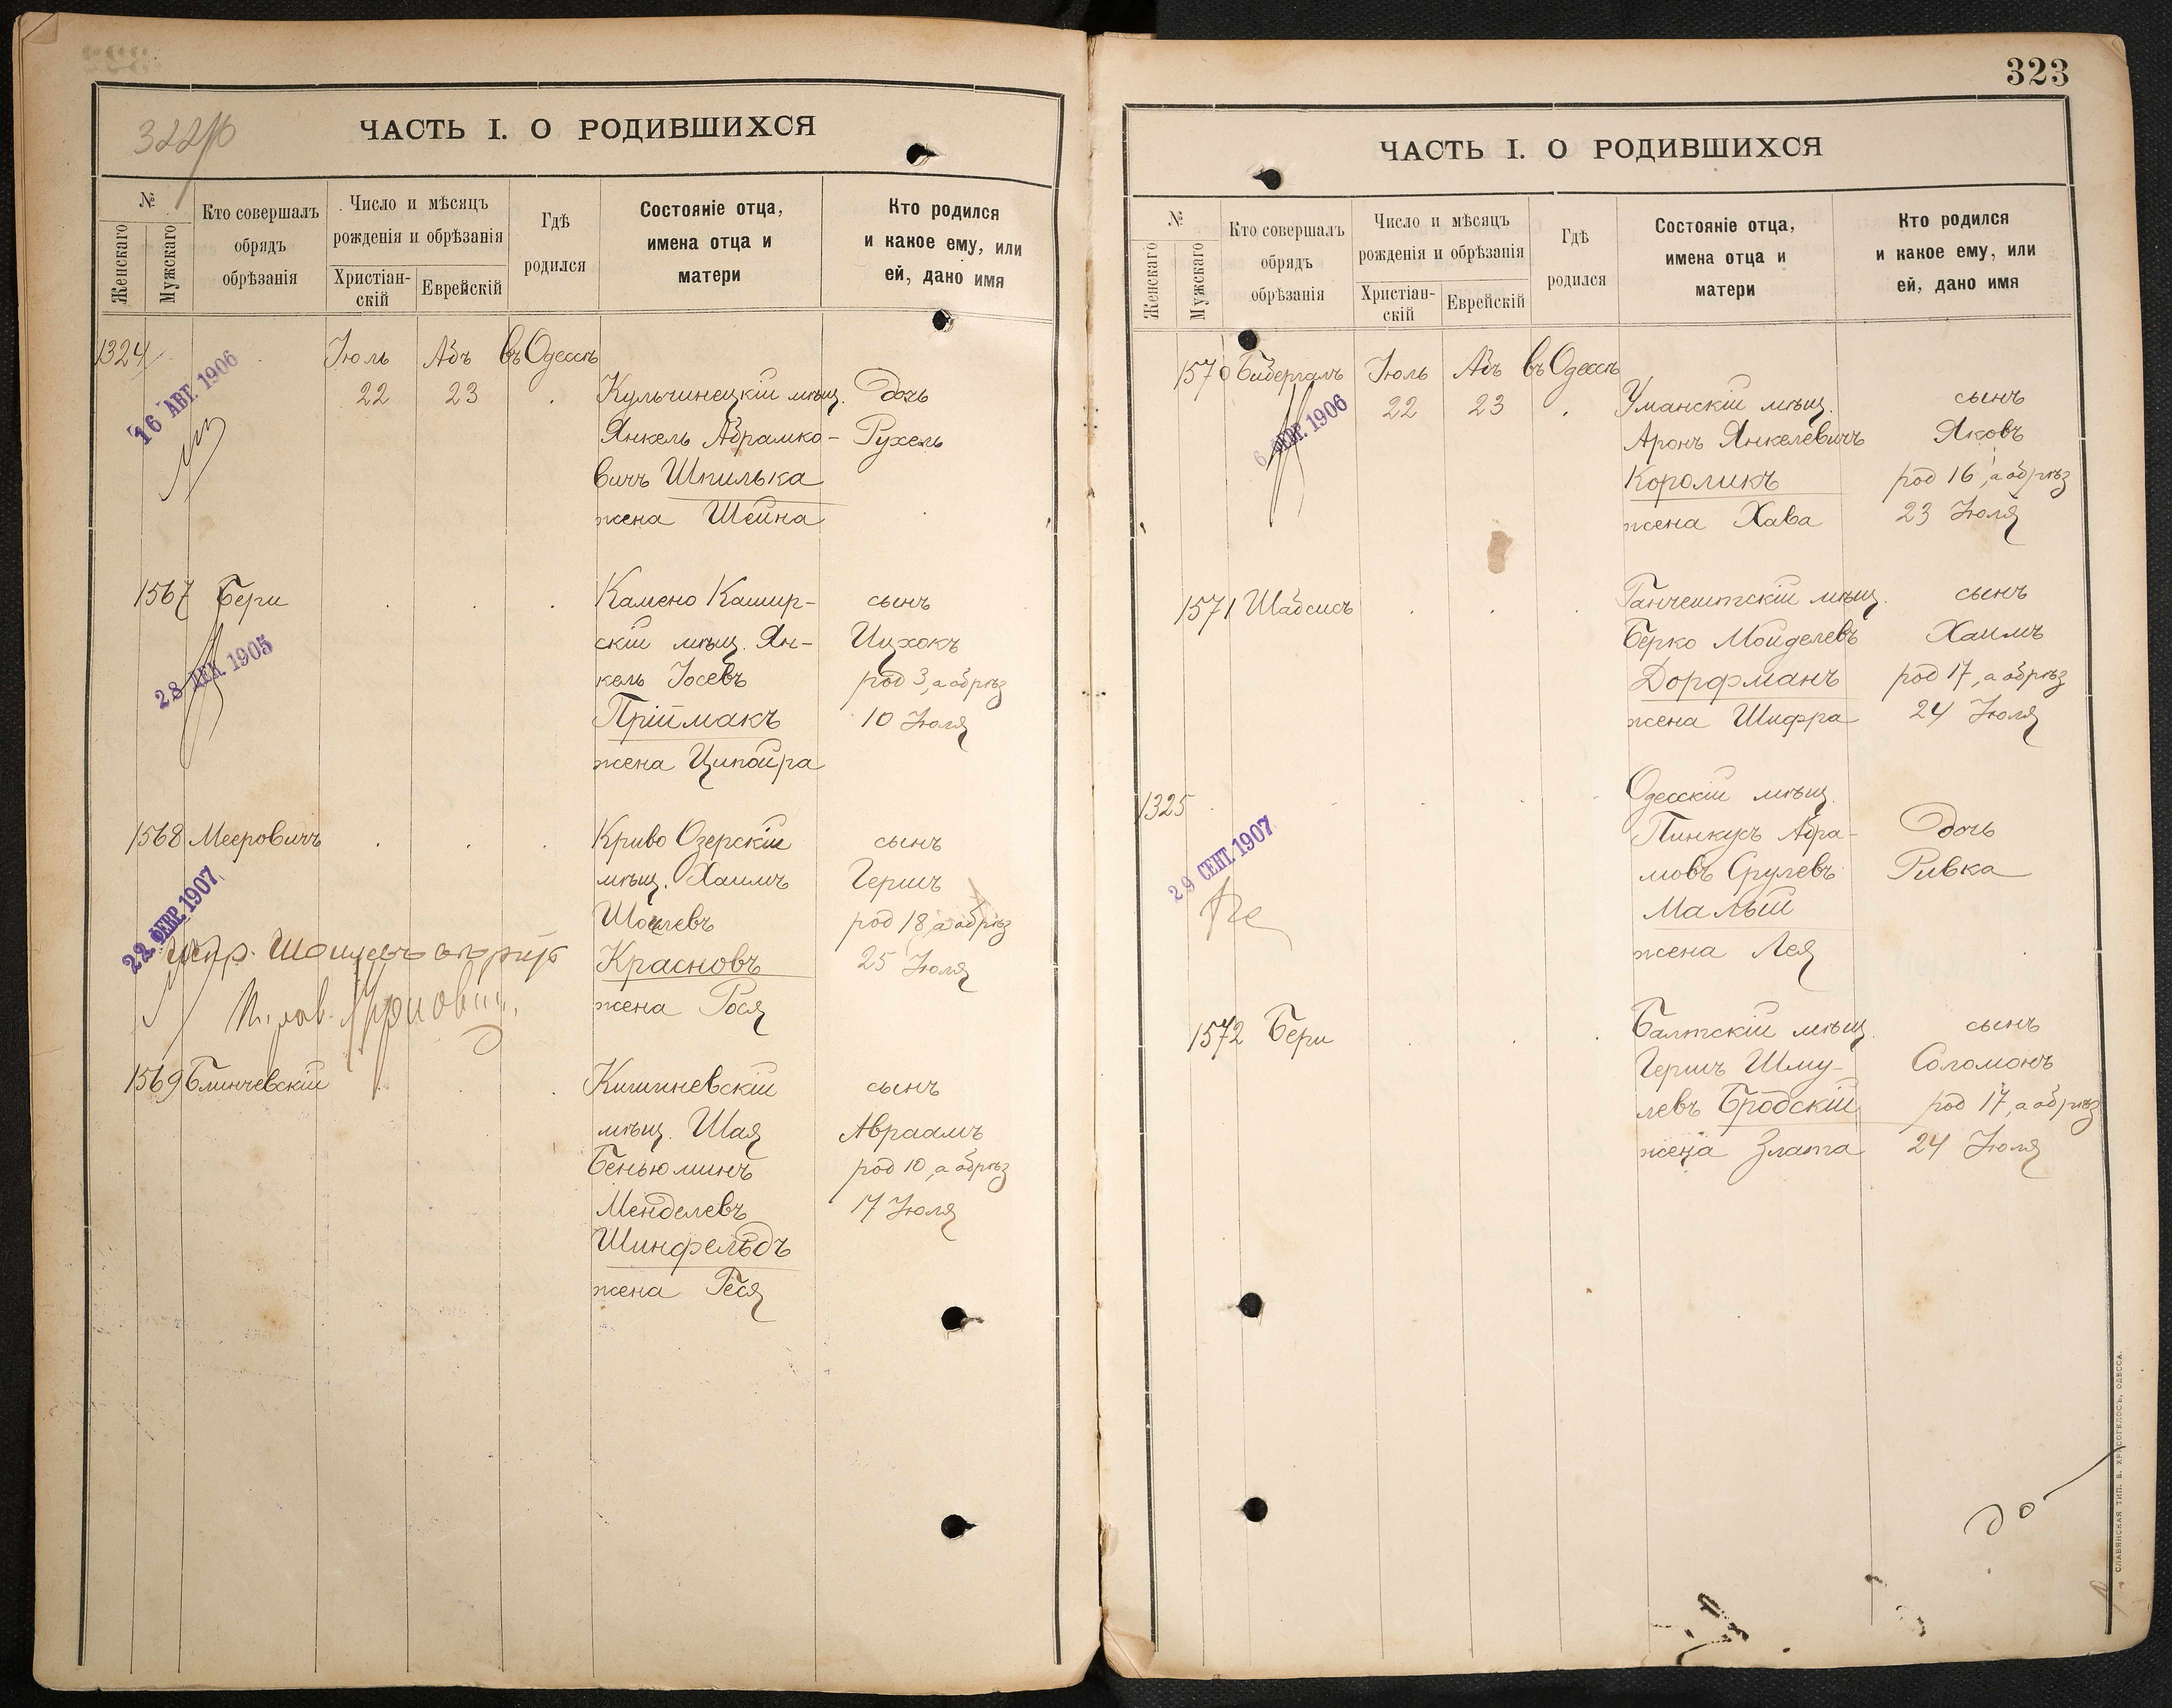 322
ЧАСТЬ I. О РОДИВШИХСЯ
№
Женскаго
Мужскаго
Кто совершалъ
обрядъ
обрѣзанія
Число и мѣсяцъ
рожденія и обрѣзанія
Христіан-
скій
Еврейскій
Гдѣ
родился
Состояніе отца,
имена отца и
матери
Кто родился
и какое ему, или
ей, дано имя
1324
Іюль Абъ въ Одессѣ
22 23 Кульчинецкій мѣщ. Дочь
Янкель Абрамко- Рухель
вичъ Шпилька
жена Шейна
16 АВГ. 1906
1567 Бери Камено Кашир- сынъ
скій мѣщ. Ян- Ицхокъ
кель Іосевъ род 3, а обрѣз
Пріймакъ 10 Іюля
жена Ципойра
28 ДЕК. 1905
1568 Мееровичъ Криво Озерскій сынъ
мѣщ. Хаимъ Гершъ
Шоилевъ род 18, а обрѣз
Красновъ 25 Іюля
жена Рося
22 ФЕВР. 1907
1569 Блинчевскій Кишиневскій сынъ
мѣщ. Шая Авраамъ
Беньюминъ род 10, а обрѣз
Менделевъ 17 Іюля
Шинфельдъ
жена Геся
323
ЧАСТЬ I. О РОДИВШИХСЯ
№
Женскаго
Мужскаго
Кто совершалъ
обрядъ
обрѣзанія
Число и мѣсяцъ
рожденія и обрѣзанія
Христіан-
скій
Еврейскій
Гдѣ
родился
Состояніе отца,
имена отца и
матери
Кто родился
и какое ему, или
ей, дано имя
1570 Бибергалъ Іюль Абъ въ Одессѣ
22 23 Уманскій мѣщ. сынъ
Аронъ Янкелевичъ Яковъ
Короликъ род 16, а обрѣз
жена Хава 23 Іюля
6 ФЕВР. 1906
1571 Шабсисъ Ганчештскій мѣщ. сынъ
Берко Мойделевъ Хаимъ
Дорфманъ род 17, а обрѣз
жена Шифра 24 Іюля
1325 Одесскій мѣщ.
Пинкусъ Абра- Дочь
мовъ Срулевъ Ривка
Малый
жена Лея
29 СЕНТ. 1907
1572 Бери Балтскій мѣщ. сынъ
Гершъ Шму- Соломонъ
левъ Бродскій род 17, а обрѣз
жена Злата 24 Іюля
СЛАВЯНСКАЯ ТИП. Е. ХРИСОГЕЛОСЪ, ОДЕССА.